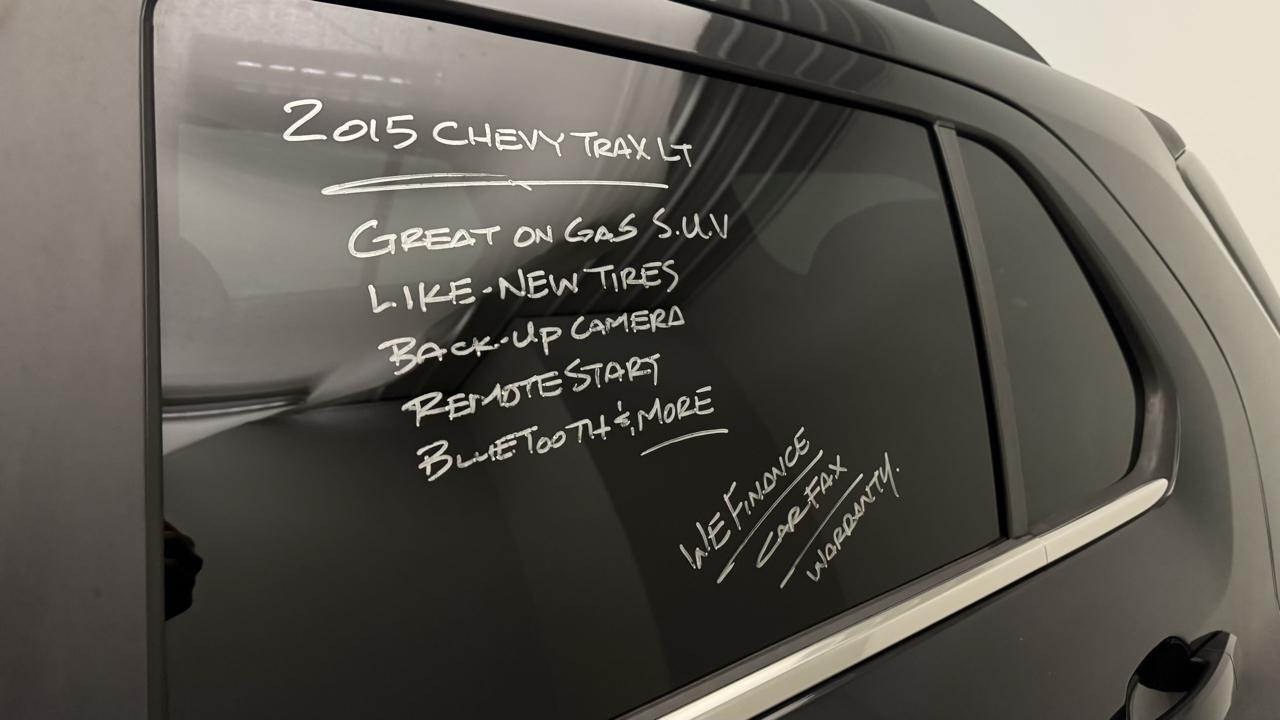 2015 CHEVY TRAX LT
GREAT ON GAS S.U.V
LIKE-NEW TIRES
BACK-UP CAMERA
REMOTE START
BLUETOOTH & MORE
WE FINANCE
CARFAX
WARRANTY.